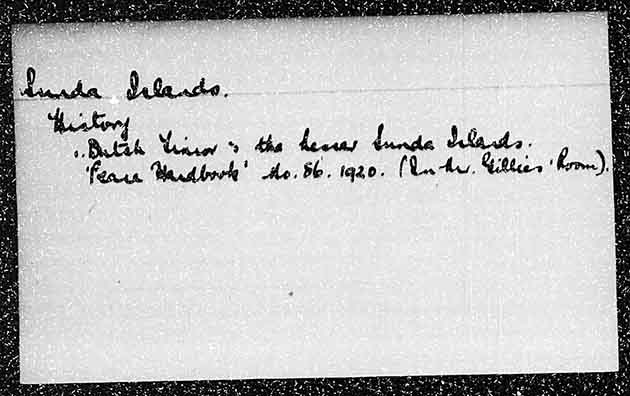 Sunda Islands.
History
"Dutch Timor & the Lesser Sunda Islands.
'Peace Handbook' No. 86. 1920. (In Mr. Gillies' Room).